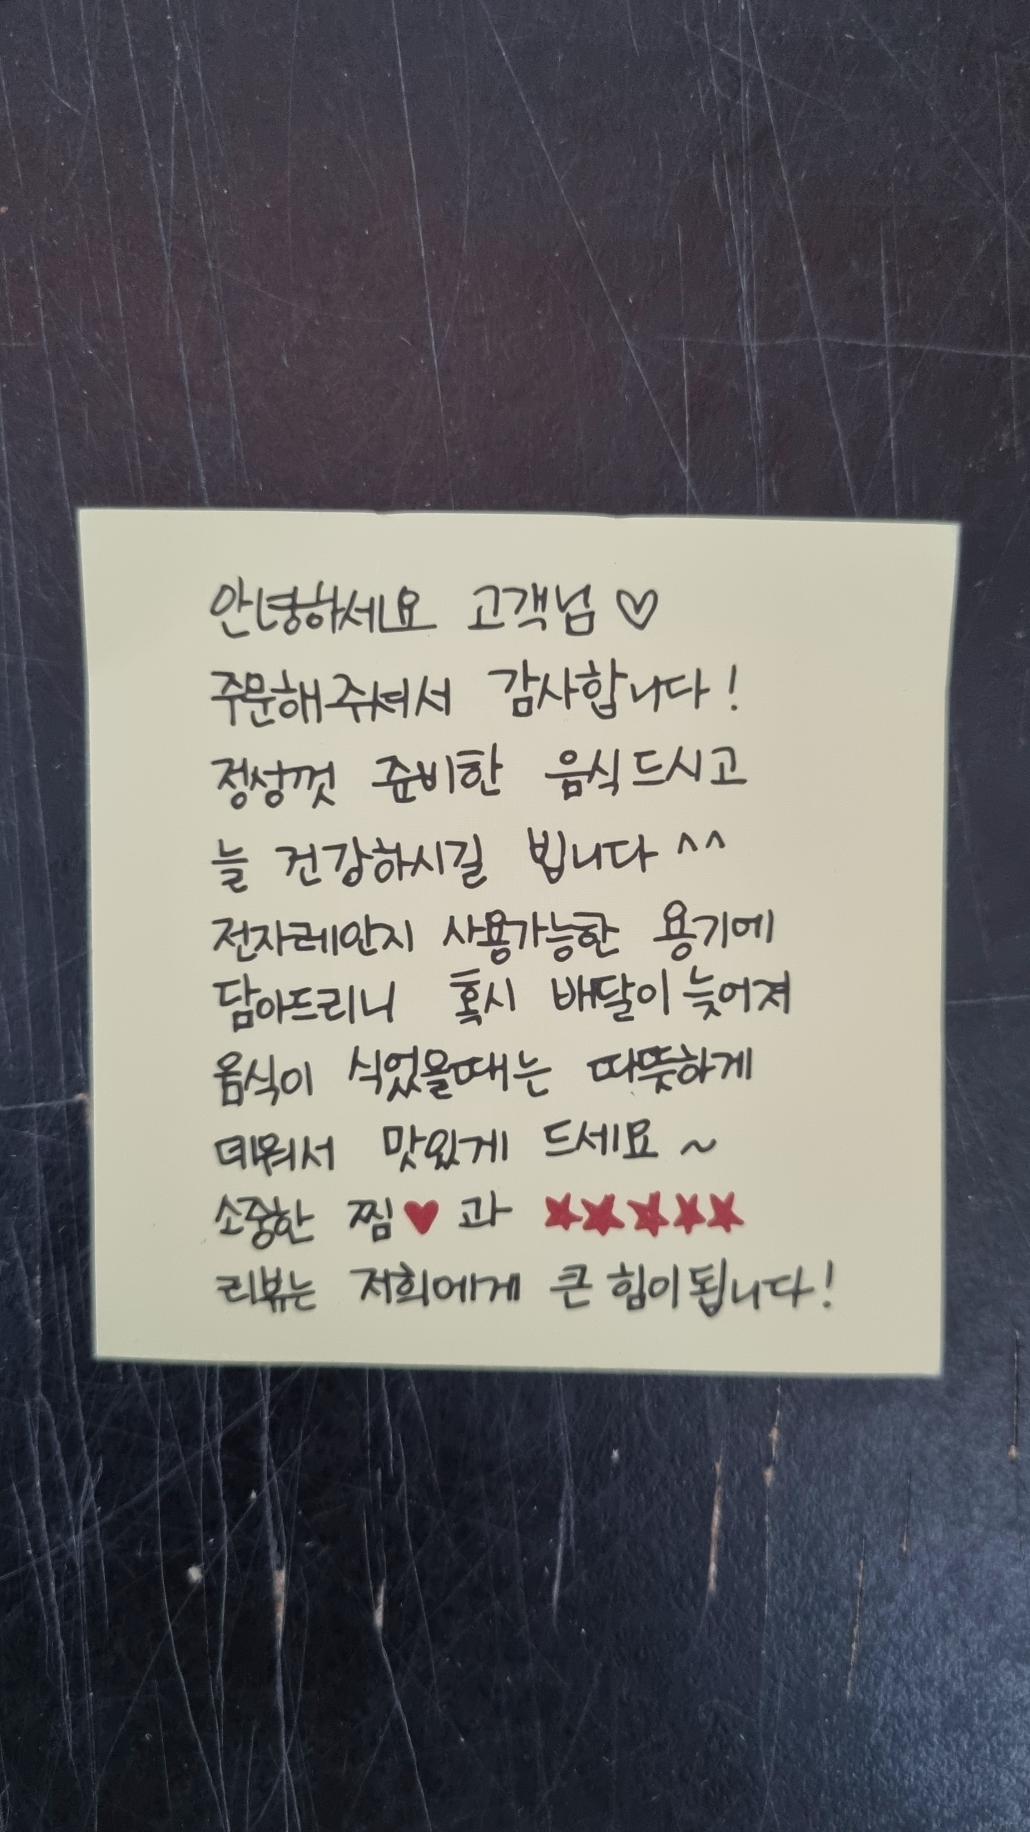 안녕하세요 고객님 ♡
주문해주셔서 감사합니다!
정성껏 준비한 음식드시고
늘 건강하시길 빕니다 ^^
전자레인지 사용가능한 용기에
담아드리니 혹시 배달이 늦어져
음식이 식었을때는 따뜻하게
데워서 맛있게 드세요~
소중한 찜♥과 ★★★★★
리뷰는 저희에게 큰 힘이 됩니다!